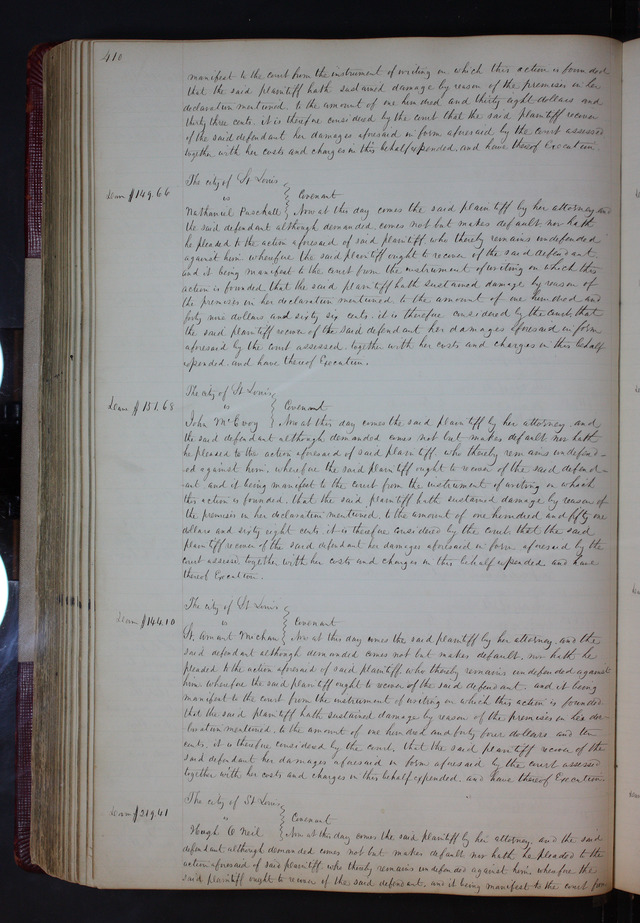 410
manifest to the court from the instrument of writing on which this action is founded
that the said plaintiff hath sustained damage by reason of the premises in her
declaration mentioned, to the amount of one hundred and thirty eight dollars and
thirty three cents. it is therefore considered by the court that the said plaintiff recover
of the said defendant her damages aforesaid in form aforesaid by the court assessed
together with her costs and charges in this behalf expended, and have thereof Execution.
The city of St Louis
Dam $149.66 vs Covenant
Nathaniel Paschall Now at this day comes the said plaintiff by her attorney and
the said defendant although demanded comes not but makes default nor hath
he pleaded to the action aforesaid of said plaintiff who thereby remains undefended
against him, wherefore the said plaintiff ought to recover of the said defendant
and it being manifest to the court from the instrument of writing on which this
action is founded that the said plaintiff hath sustained damage by reason of
the premises in her declaration mentioned to the amount of one hundred and
forty nine dollars and sixty six cents. it is therefore considered by the court, that
the said plaintiff recover of the said defendant her damages aforesaid in form
aforesaid by the court assessed, together with her costs and charges in this behalf
expended, and have thereof Execution.
The city of St Louis
Dam $151.68 vs Covenant
John McEvoy Now at this day comes the said plaintiff by her attorney, and
the said defendant although demanded comes not but makes default nor hath
he pleaded to the action aforesaid of said plaintiff who thereby remains undefend-
ed against him, wherefore the said plaintiff ought to recover of the said defend-
ant and it being manifest to the court from the instrument of writing on which
this action is founded, that the said plaintiff hath sustained damage by reason of
the premises in her declaration mentioned, to the amount of one hundred and fifty one
dollars and sixty eight cents. it is therefore considered by the court, that the said
plaintiff recover of the said defendant her damages aforesaid in form aforesaid by the
court assessed, together with her costs and charges in this behalf expended and have
thereof Execution.
The city of St Louis
Dam $144.10 vs Covenant
St. Amant Now at this day comes the said plaintiff by her attorney, and the
said defendant although demanded comes not but makes default, nor hath he
pleaded to the action aforesaid of said plaintiff who thereby remains undefended against
him. wherefore the said plaintiff ought to recover of the said defendant. and it being
manifest to the court from the instrument of writing on which this action is founded
that the said plaintiff hath sustained damage by reason of the premises in her dec-
laration mentioned, to the amount of one hundred and forty four dollars and ten
cents. it is therefore considered by the court, that the said plaintiff recover of the
said defendant her damages aforesaid in form aforesaid by the court assessed
together with her costs and charges in this behalf expended, and have thereof Execution
The city of St Louis
Dam $219.41 " Covenant
Hugh O Neil Now at this day comes the said plaintiff by her attorney, and the said
defendant although demanded comes not but makes default nor hath he pleaded to the
action aforesaid of said plaintiff who thereby remains undefended against him wherefore the
said plaintiff ought to recover of the said defendant, and it being manifest to the court from